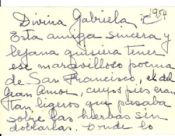 Divina Gabriela, 1954
Esta amiga sincera y
lejana quisiera tener
ese maravilloso poema
de San Francisco, el del
Gran Amor, cuyos pies eran
tan ligeros que pasaba
sobre las hierbas sin
doblarlas. Donde lo